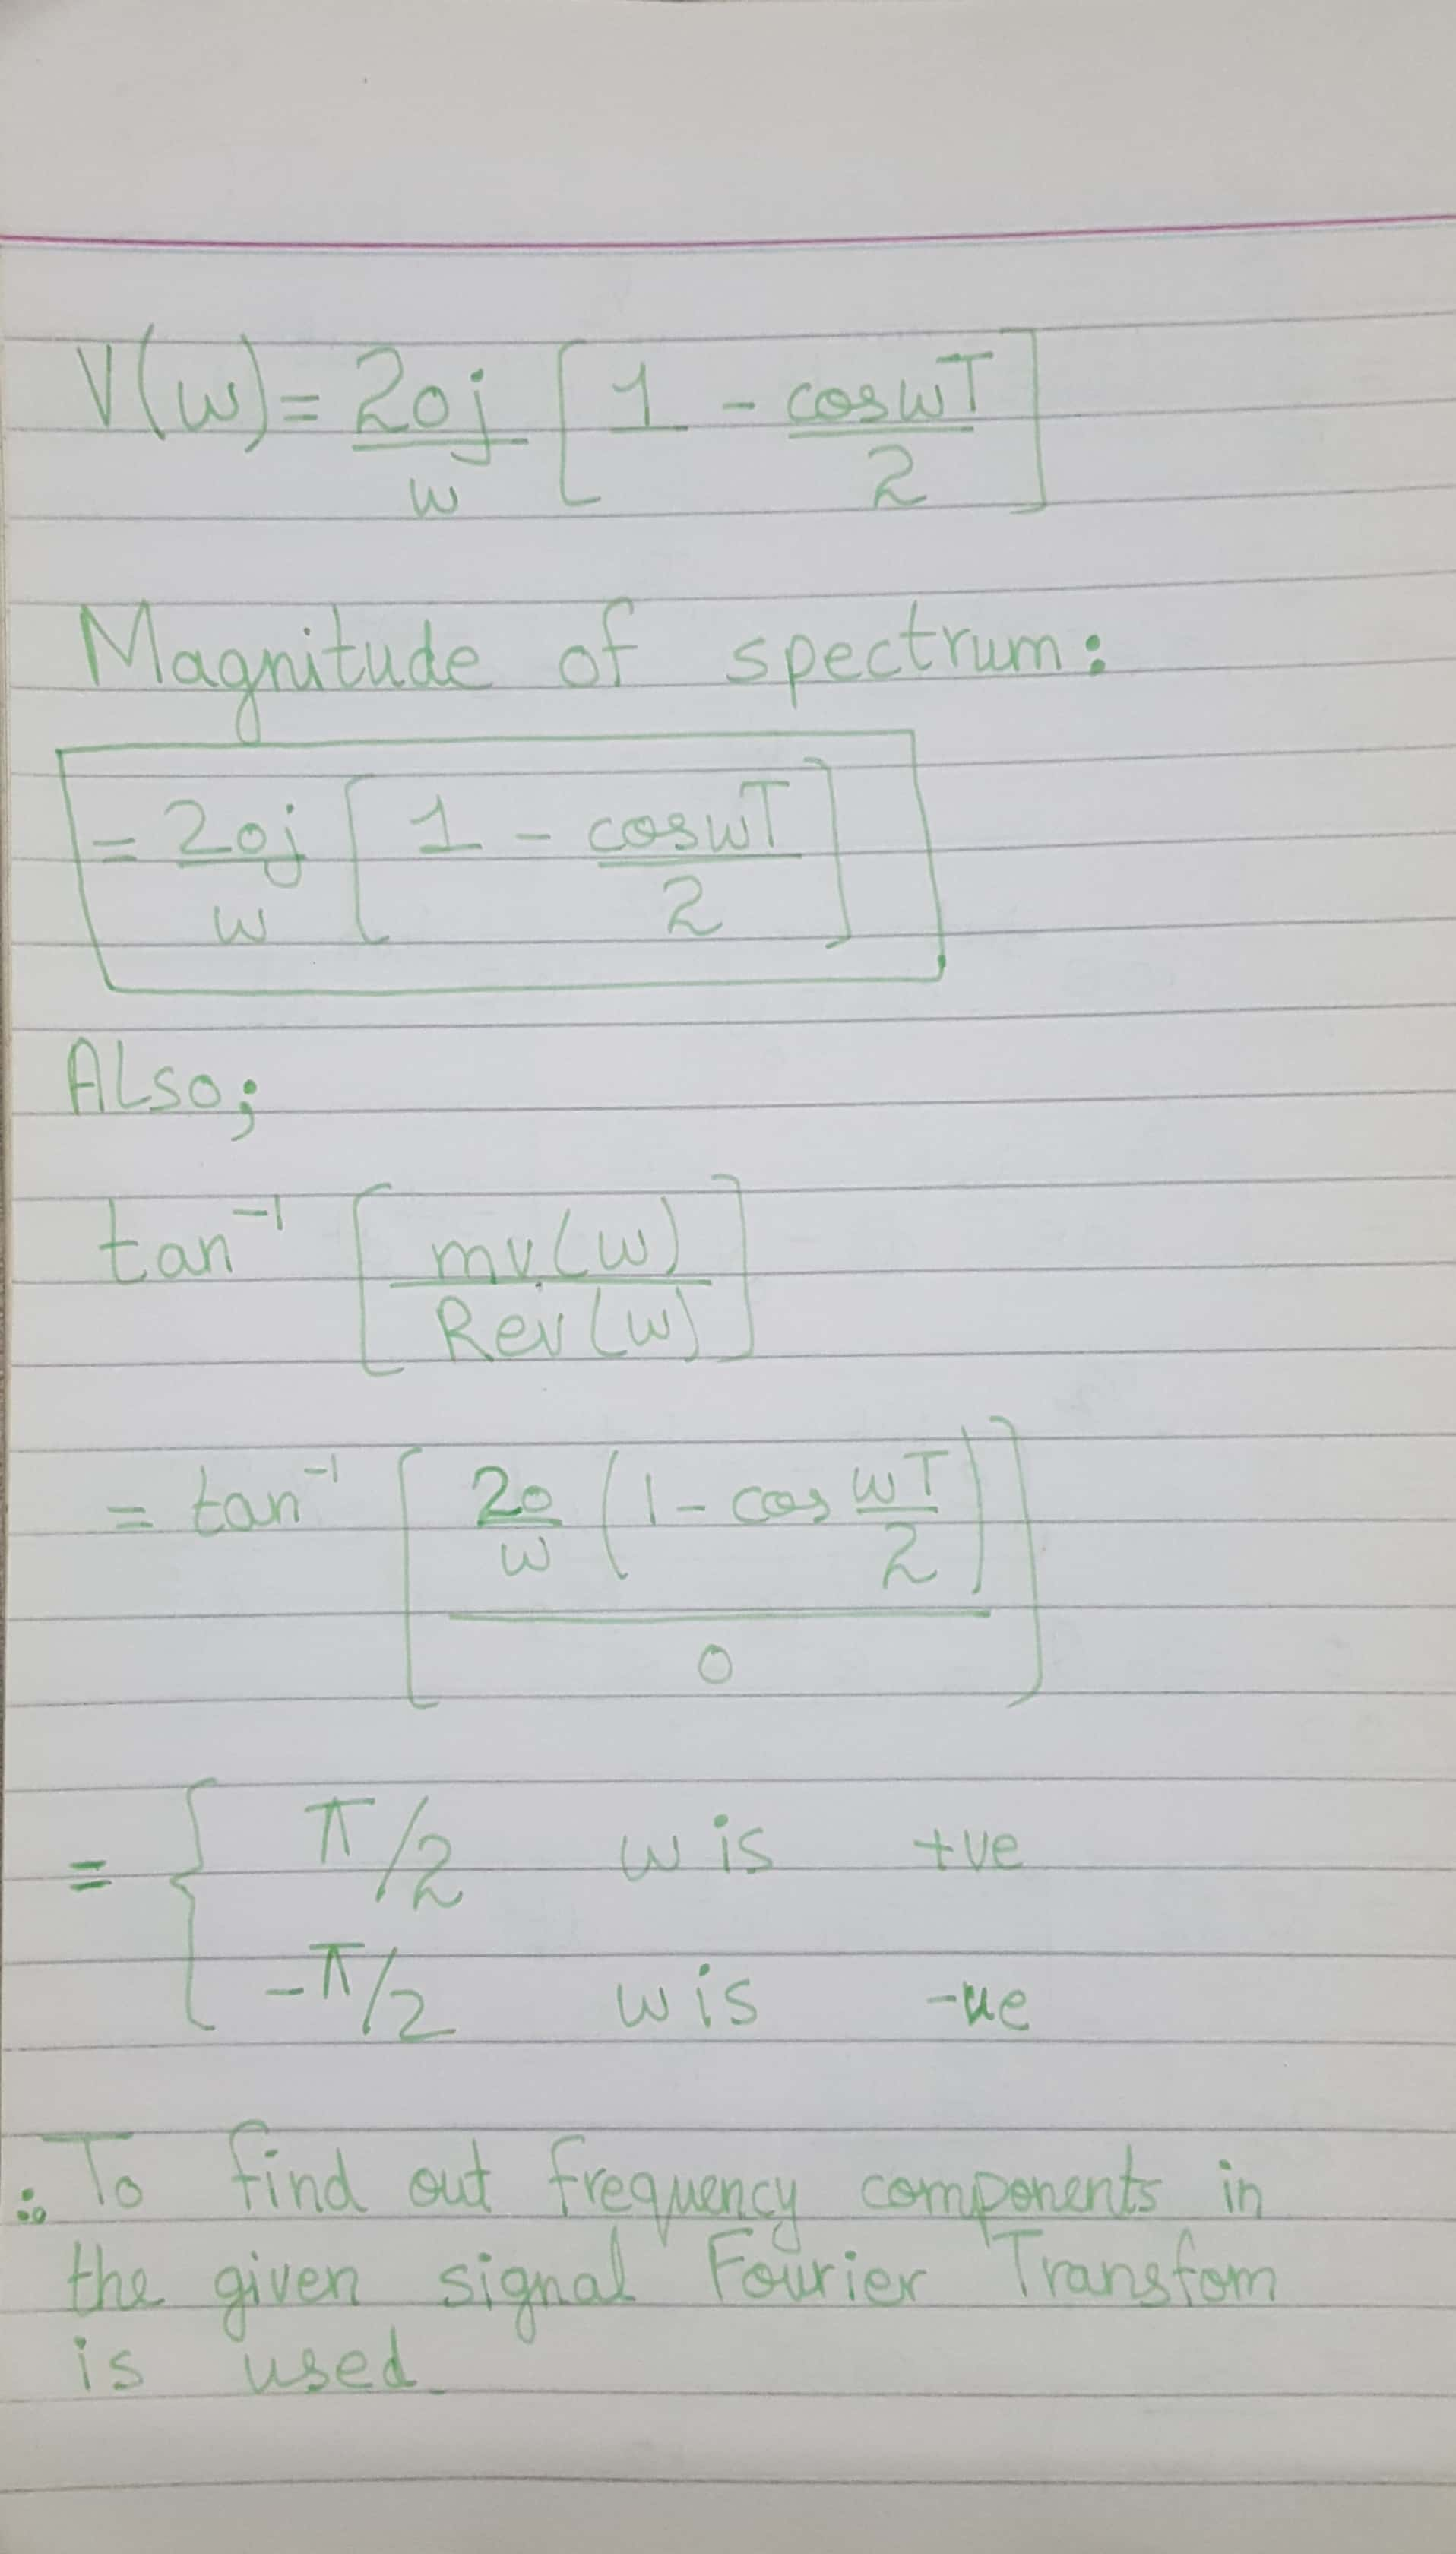 V(w) = 20j/w [ 1 - coswT/2 ]
Magnitude of spectrum:
= 20j/w [ 1 - coswT/2 ]
ALso;
tan⁻¹ [ mv(w)/Rev(w) ]
= tan⁻¹ [ 20/w (1 - cos wT/2) / 0 ]
= { π/2 w is +ve
-π/2 w is -ve
∴ To find out frequency components in
the given signal Fourier Transfom
is used.